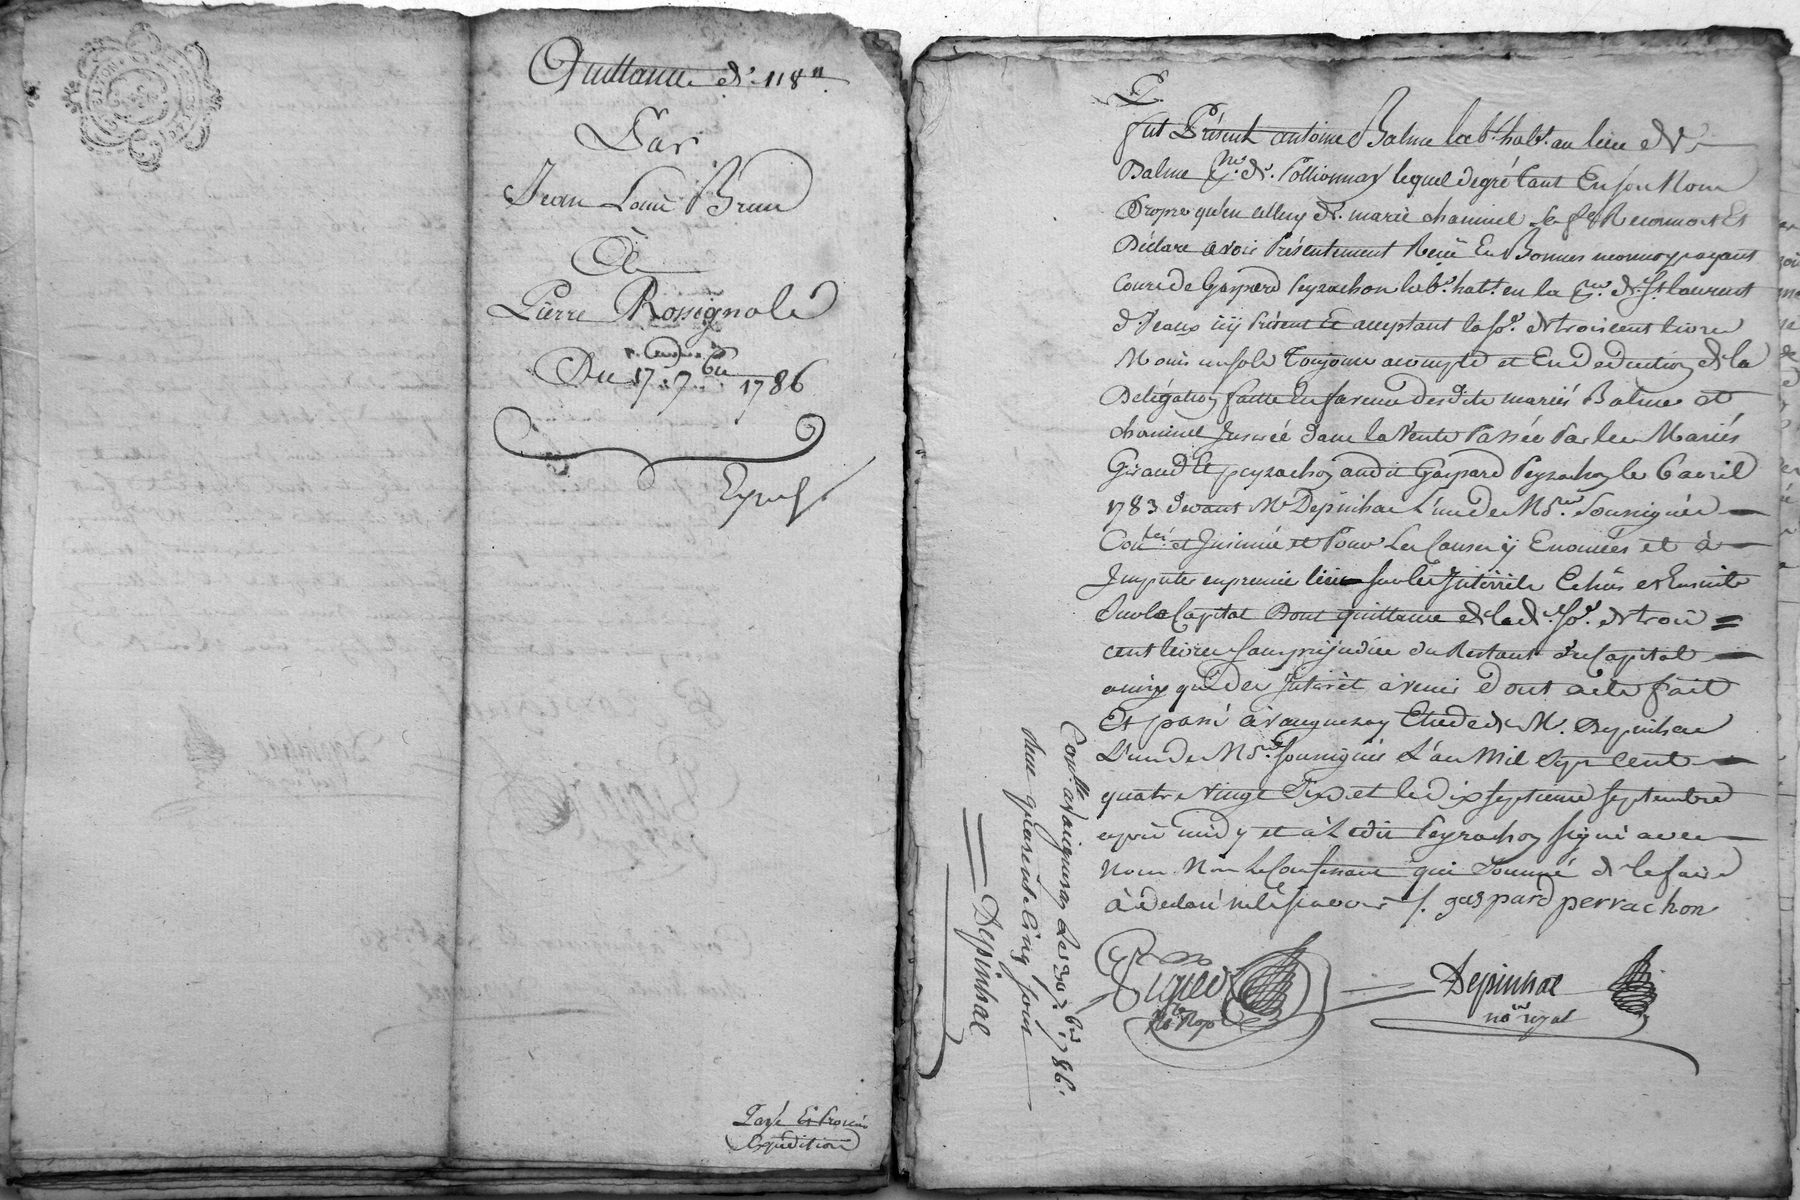 Quittance de 118 ll
Par
Jean Louis Brun
À
Pierre Rossignol
Du 17 7bre 1786
Payé Et
Expedition
fut Présent antoine Balme lab.r hab.t au lieu de
Balme lequel degré tant En son Nom
Propre qu'en celluy de marie chaminel sa fe Reconnoit Et
Déclare avoir Présentement Reçu En Bonnes monnoy ayant
cours de Gaspard Peyrachon lab.r hab.t en la de St laurent
d iÿ Présent Et acceptant la so.e de trois cent livres
Moins un sols Toujours acompte et En deduction de la
Délégation faitte En faveur desdits mariés Balme et
chaminel Inserée dans la Vente Passée Par les Mariés
Giraud Et peyrachon audit Gaspard Peyrachon le 6 avril
1783 devant M.e Depinhac L'un de N.s No.res Soussignés
Con.lé et Insinué et Pour Les Causes ÿ Enoncées et à
Imputer en premier lieu sur les Intérrêts Echûs et Ensuite
Sur le Capital Dont quittance de la d.e so.e de trois =
cent livres sans préjudice du Restant du Capital
ainsy que des Interêt a venir dont acte fait
Et passé à vaugneray Etude de M.e Depinhac
L'un de N.s No.res soussignés L'an Mil Sept Cent
quatre Vingt Six et le dix septieme septembre
après midy et a Ledit Peyrachon signé avec
nous Non Le Confessant qui Sommé de le faire
à déclaré ne le sçavoir /. gaspard perrachon
Depinhac
no.re royal
Con.lé a Vaugneray Le 7bre 1786.
Reçu quarente Cinq sous
Depinhac